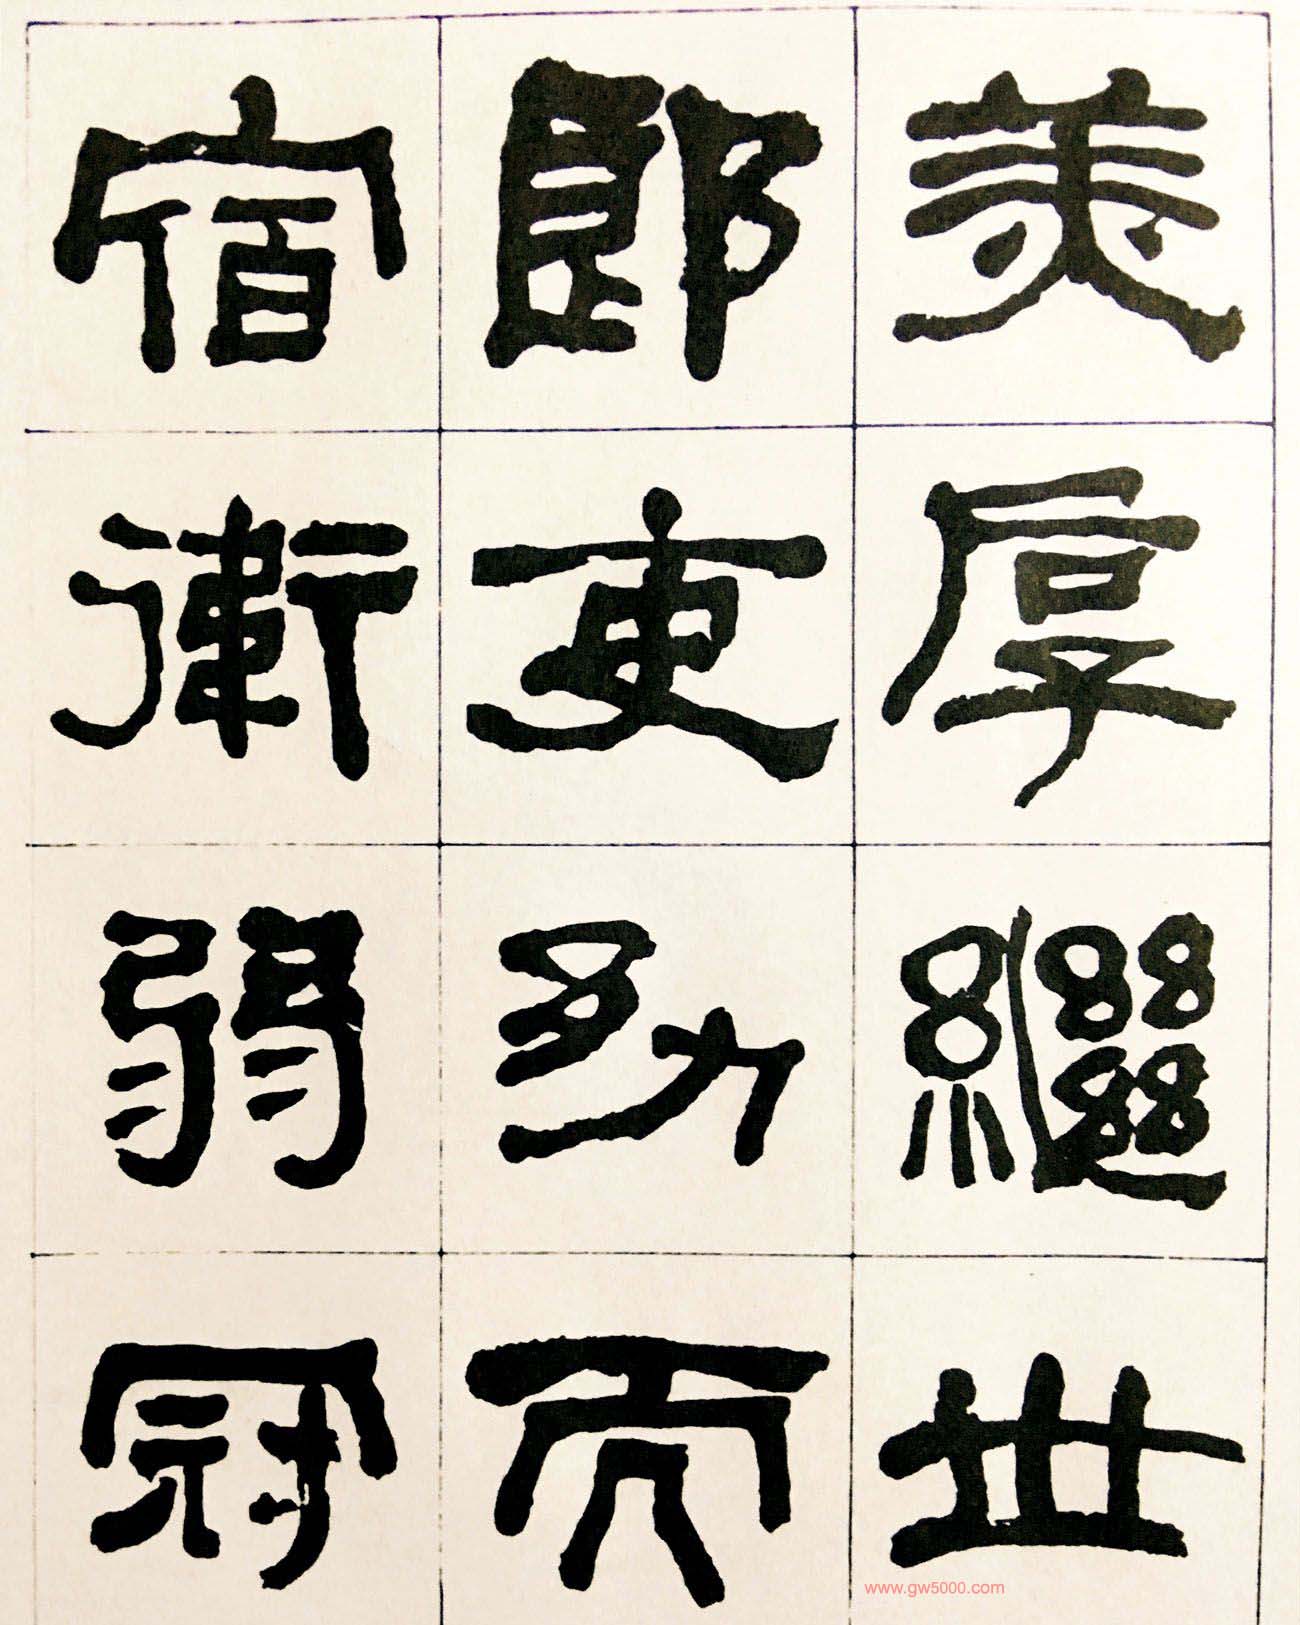 美厚繼世
郎吏幼而
宿衛弱冠
www.gw5000.com